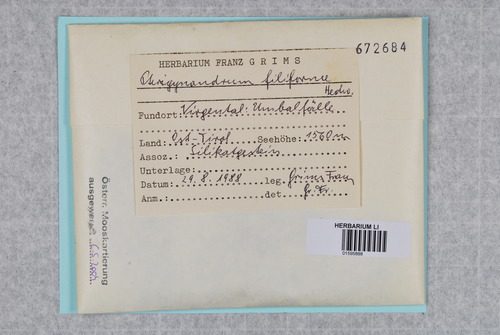 672684
HERBARIUM FRANZ GRIMS
Pterigynandrum filiforme
Hedw.
Fundort: Virgental: Umbalfälle
Land: Ost-Tirol Seehöhe: 1560m
Assoz.: Silikatgestein
Unterlage:
Datum: 29.8.1988 leg. Grims Franz
Anm.: det. Gr. Fr.
Österr. Mooskartierung
ausgewertet:
HERBARIUM LI
01595888